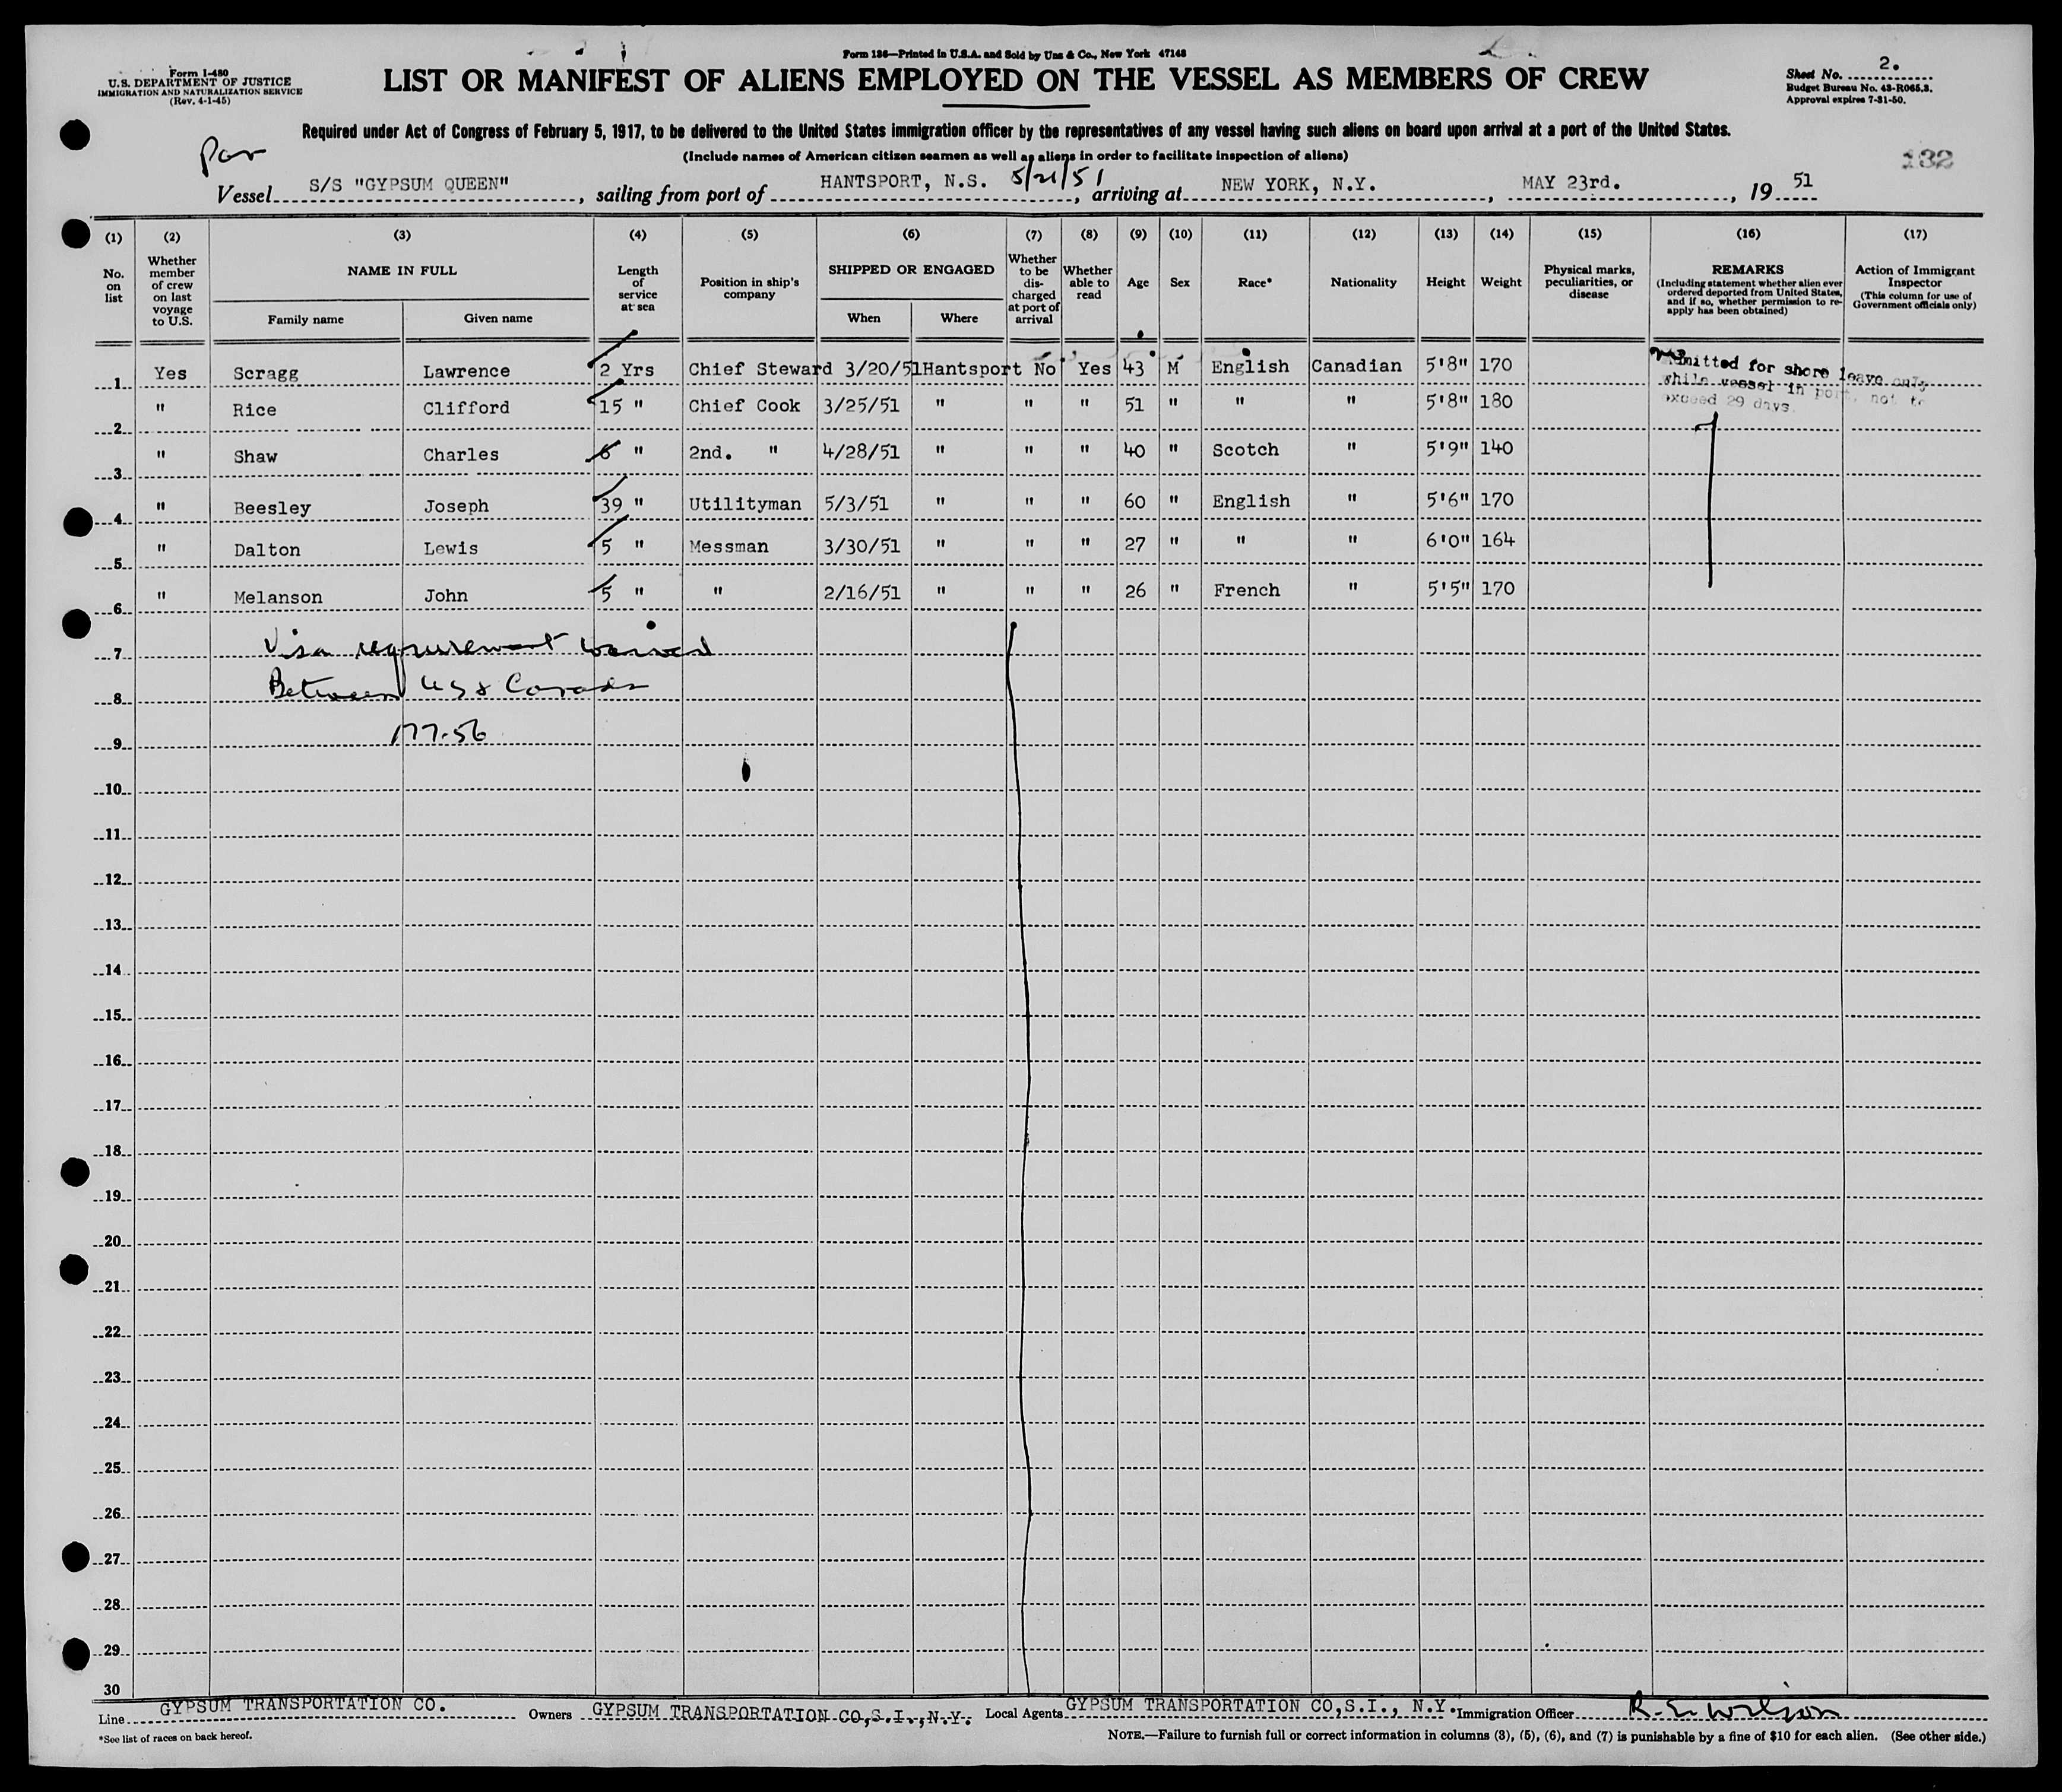 Form 136—Printed in U.S.A. and Sold by Unz & Co., New York 47148
Form I-480
U.S. DEPARTMENT OF JUSTICE
IMMIGRATION AND NATURALIZATION SERVICE
(Rev. 4-1-45)
LIST OR MANIFEST OF ALIENS EMPLOYED ON THE VESSEL AS MEMBERS OF CREW
Sheet No. 2.
Budget Bureau No. 43-R065.3.
Approval expires 7-31-50.
Required under Act of Congress of February 5, 1917, to be delivered to the United States immigration officer by the representatives of any vessel having such aliens on board upon arrival at a port of the United States.
(Include names of American citizen seamen as well as aliens in order to facilitate inspection of aliens)
132
Vessel S/S "GYPSUM QUEEN", sailing from port of HANTSPORT, N.S. 5/21/51, arriving at NEW YORK, N.Y., MAY 23rd., 19 51
(1) (2) (3) (4) (5) (6) (7) (8) (9) (10) (11) (12) (13) (14) (15) (16) (17)
No. on list
Whether member of crew on last voyage to U.S.
NAME IN FULL
Family name
Given name
Length of service at sea
Position in ship's company
SHIPPED OR ENGAGED
When
Where
Whether to be discharged at port of arrival
Whether able to read
Age
Sex
Race*
Nationality
Height
Weight
Physical marks, peculiarities, or disease
REMARKS
(Including statement whether alien ever ordered deported from United States, and if so, whether permission to re-apply has been obtained)
Action of Immigrant Inspector
(This column for use of Government officials only)
1 Yes Scragg Lawrence 2 Yrs Chief Steward 3/20/51 Hantsport No Yes 43 M English Canadian 5'8" 170
mitted for shore leave only
while vessel in port, not to
exceed 29 days.
2 " Rice Clifford 15 " Chief Cook 3/25/51 " " " 51 " " " 5'8" 180
3 " Shaw Charles 6 " 2nd. " 4/28/51 " " " 40 " Scotch " 5'9" 140
4 " Beesley Joseph 39 " Utilityman 5/3/51 " " " 60 " English " 5'6" 170
5 " Dalton Lewis 5 " Messman 3/30/51 " " " 27 " " " 6'0" 164
6 " Melanson John 5 " " 2/16/51 " " " 26 " French " 5'5" 170
7 Visa requirement waived
8 Between US & Canada
9 177.56
10
11
12
13
14
15
16
17
18
19
20
21
22
23
24
25
26
27
28
29
30
Line GYPSUM TRANSPORTATION CO. Owners GYPSUM TRANSPORTATION CO,S.I.,N.Y. Local Agents GYPSUM TRANSPORTATION CO,S.I., N.Y. Immigration Officer R. E. Wilson
*See list of races on back hereof.
NOTE.—Failure to furnish full or correct information in columns (3), (5), (6), and (7) is punishable by a fine of $10 for each alien. (See other side.)